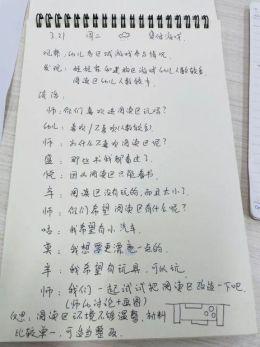 3.21 周二 区域游戏
观察:幼儿各区域游戏参与情况
发现:娃娃家和建构区游戏幼儿人数较多
阅读区幼儿人数较少
谈话:
师:你们喜欢进阅读区玩吗?
幼儿:喜欢/不喜欢(人数较多)
师:为什么不喜欢阅读区呢?
那些书我都看过了。
因为阅读区只能看书
辛:阅读区没有玩的,而且太小了.
师:你们希望阅读区有什么呢?
我希望有小汽车.
我想要更漂亮一点的.
辛:我希望有玩具,可以玩
师:我们一起试试把阅读区改造一下吧.
(师幼讨论+画图)
反思:阅读区环境不够温馨、材料
比较单一,可适当整改.